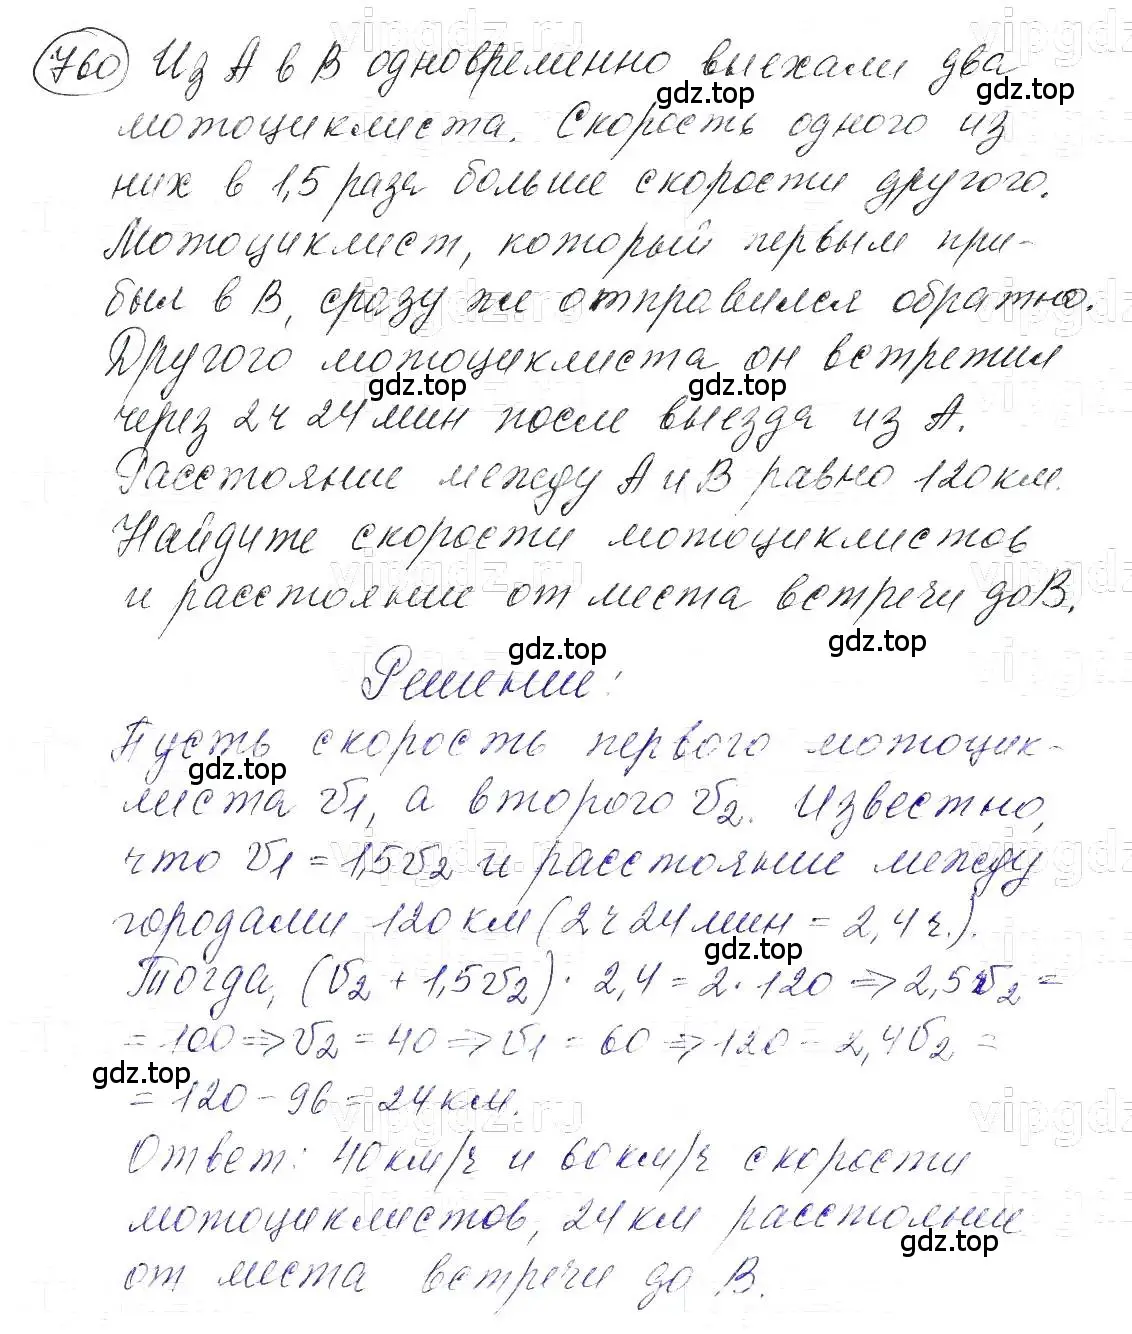 760 Из А в В одновременно выехали два
мотоциклиста. Скорость одного из
них в 1,5 раза больше скорости другого.
Мотоциклист, который первым при-
был в В, сразу же отправился обратно.
Другого мотоциклиста он встретил
через 2 ч 24 мин после выезда из А.
Расстояние между А и В равно 120 км.
Найдите скорости мотоциклистов
и расстояние от места встречи до В.
Решение:
Пусть скорость первого мотоцик-
листа v1, а второго v2. Известно,
что v1 = 1,5v2 и расстояние между
городами 120 км (2 ч 24 мин = 2,4 ч.).
Тогда, (v2 + 1,5v2) · 2,4 = 2 · 120 => 2,5v2 =
= 100 => v2 = 40 => v1 = 60 => 120 - 2,4v2 =
= 120 - 96 = 24 км.
Ответ: 40 км/ч и 60 км/ч скорости
мотоциклистов, 24 км расстояние
от места встречи до В.